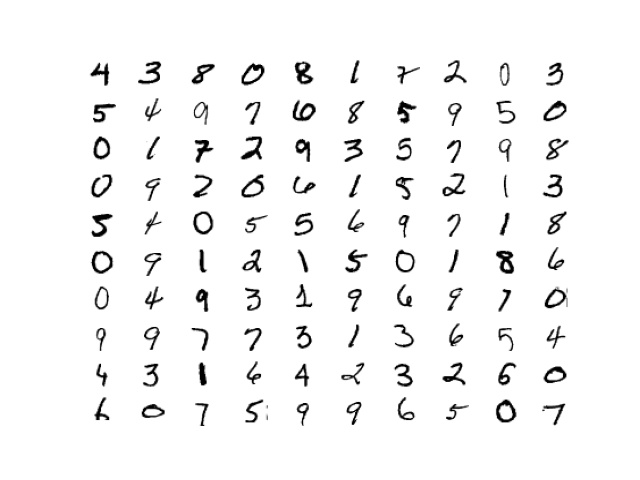 4 3 8 0 8 1 7 2 0 3
5 4 9 7 6 8 5 9 5 0
0 1 7 2 9 3 5 7 9 8
0 9 2 0 6 1 5 2 1 3
5 4 0 5 5 6 9 7 1 8
0 9 1 2 1 5 0 1 8 6
0 4 9 3 1 9 6 9 7 0
9 9 7 7 3 1 3 6 5 4
4 3 1 6 4 2 3 2 6 0
6 0 7 5 9 9 6 5 0 7